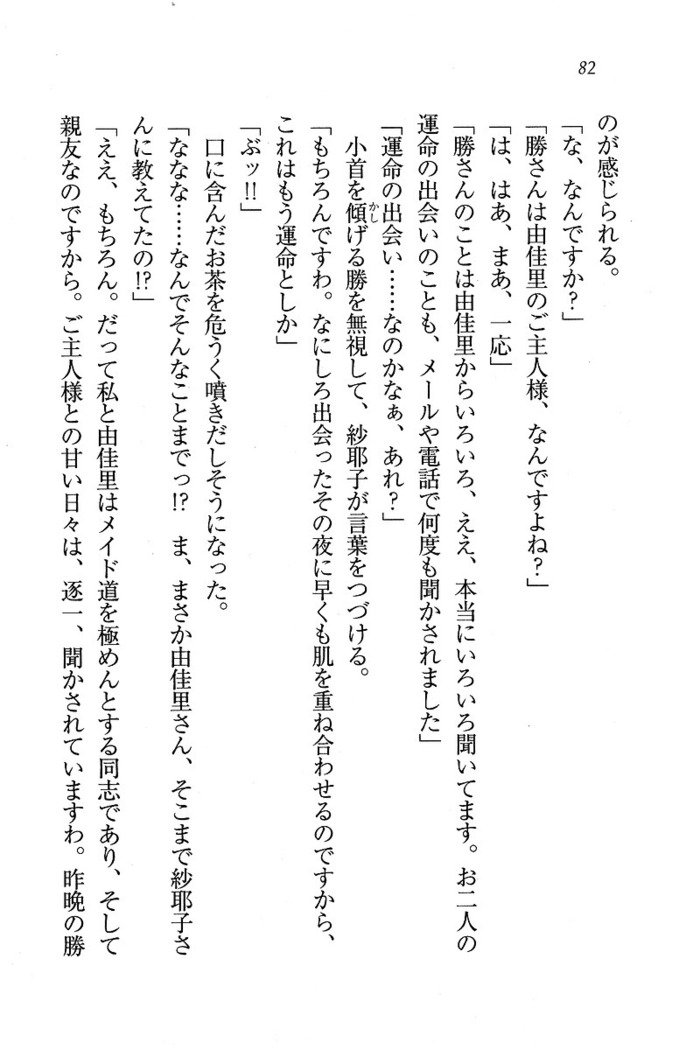 82
のが感じられる。
「な、なんですか？」
「勝さんは由佳里のご主人様、なんですよね？」
「は、はあ、まあ、一応」
「勝さんのことは由佳里からいろいろ、ええ、本当にいろいろ聞いてます。お二人の
運命の出会いのことも、メールや電話で何度も聞かされました」
「運命の出会い……なのかなぁ、あれ？」
　小首を傾かしげる勝を無視して、紗耶子が言葉をつづける。
「もちろんですわ。なにしろ出会ったその夜に早くも肌を重ね合わせるのですから、
これはもう運命としか」
「ぶッ!!」
　口に含んだお茶を危うく噴きだしそうになった。
「ななな……なんでそんなことまでっ!?　ま、まさか由佳里さん、そこまで紗耶子さ
んに教えてたの!?」
「ええ、もちろん。だって私と由佳里はメイド道を極めんとする同志であり、そして
親友なのですから。ご主人様との甘い日々は、逐一、聞かされていますわ。昨晩の勝